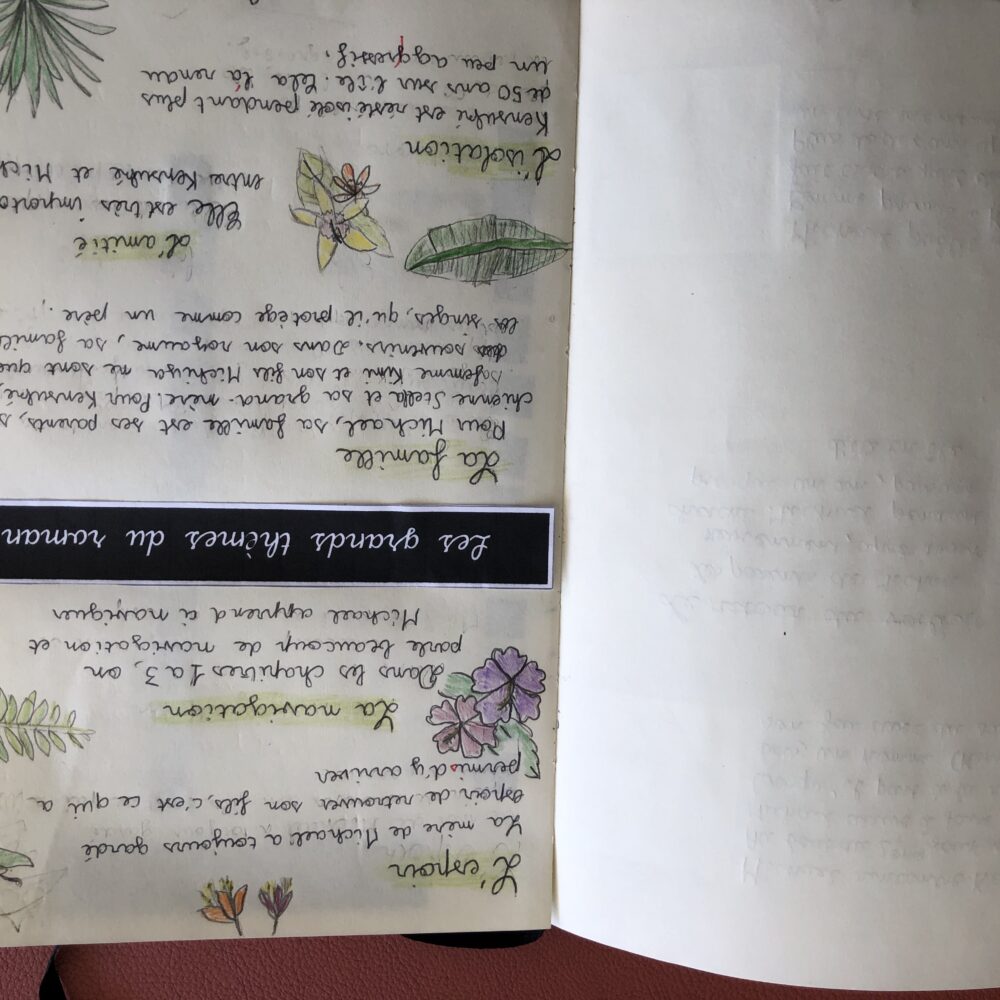 L'espoir
La mère de Michael a toujours gardé
espoir de retrouver son fils, c'est ce qui a
permis d'y arriver
La navigation
Dans les chapitres 1 à 3, on
parle beaucoup de navigation et
Michael apprend à naviguer
Les grands thèmes du roman
La famille
Pour Michael, sa famille est ses parents, s
chienne Stella et sa grand-mère. Pour Kensuké,
Sa femme Kimi et son fils Michiya ne sont que
des souvenirs. Dans son royaume, sa famill
les singes, qu'il protège comme un père.
L'amitié
Elle est très importa
entre Kensuké et Mich
L'isolation
Kensuké est resté isolé pendant plus
de 50 ans sur l'île. Cela là rendu
un peu aggressif.